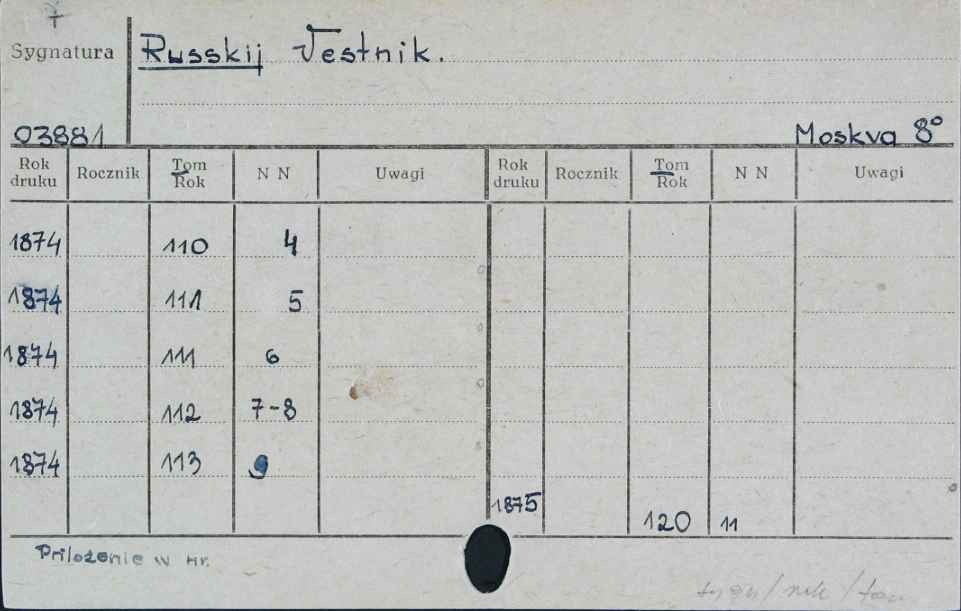 Sygnatura Russkij Vestnik.
03881 Moskva 8°
Rok druku Rocznik Tom Rok N N Uwagi Rok druku Rocznik Tom Rok N N Uwagi
1874 110 4
1874 111 5
1874 111 6
1874 112 7-8
1874 113 9
1875 120 11
Priloženie w nr.